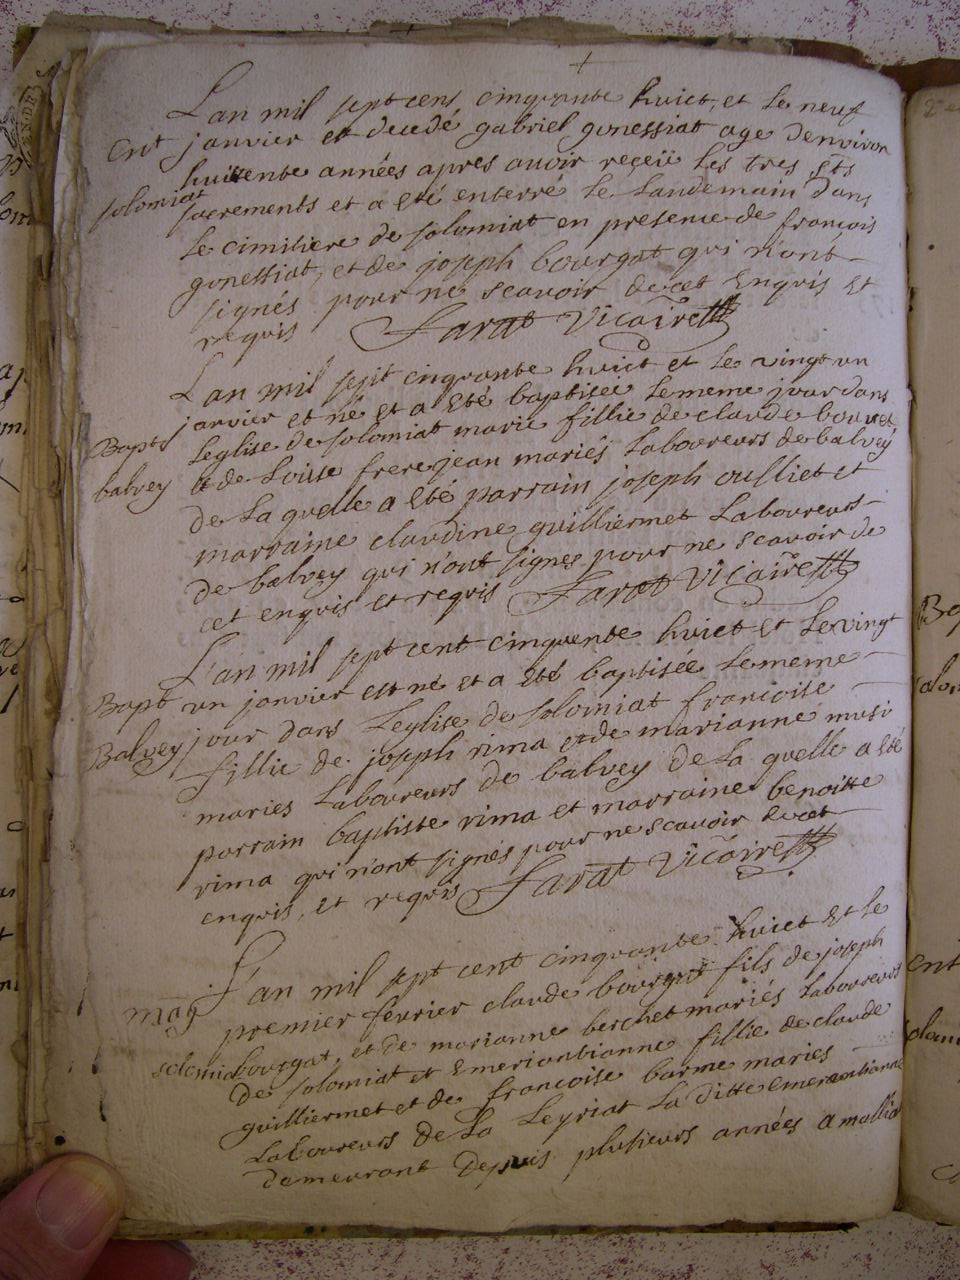 Lan mil sept cens cinquante huict, et le neuf
Ent janvier et decedé gabriel gonessiat age denviron
huittente années apres avoir reçeü les tres sts
solomiat sacrements et a eté enterré le Landemain dans
le cimitiere de solomiat en presence de françois
gonessiat, et de joseph bourgat qui n'ont
signés pour ne scavoir de cet Enquis Et
requis Farat Vicaire
Lan mil sept cinquante huict et le vingt un
janvier et né et a eté baptisée le meme jour dans
Bapt leglise de solomiat marie fillie de claude bouvet
balvey et de Louise frerejean mariés Laboureurs de balvey
de La quelle a eté parrain joseph oulliet et
marraine claudine guilliermet Laboureurs
de balvey qui n'ont signes pour ne scavoir de
cet enquis et requis Farat Vicaire
L'an mil sept cent cinquente huict et Le vingt
Bapt un janvier est né et a eté baptisée Le meme
Balvey jour dans Leglise de solomiat francoise
fillie de joseph rima et de marianne musi
maries Laboureurs de balvey de La quelle a eté
parrain baptiste rima et marraine benoitte
rima qui n'ont signés pour ne scavoir de cet
enquis, et requis Farat Vicaire
L'an mil sept cent cinquante huict Et le
mag premier février claude bourgat fils de joseph
solomia bourgat, et de marianne berchet mariés Laboureurs
de solomiat et Emerantianne fillie de claude
guilliermet et de francoise barme maries
Laboureurs de La Leyriat La ditte emerantianne
demeurant Depuis plusieurs années a mallia